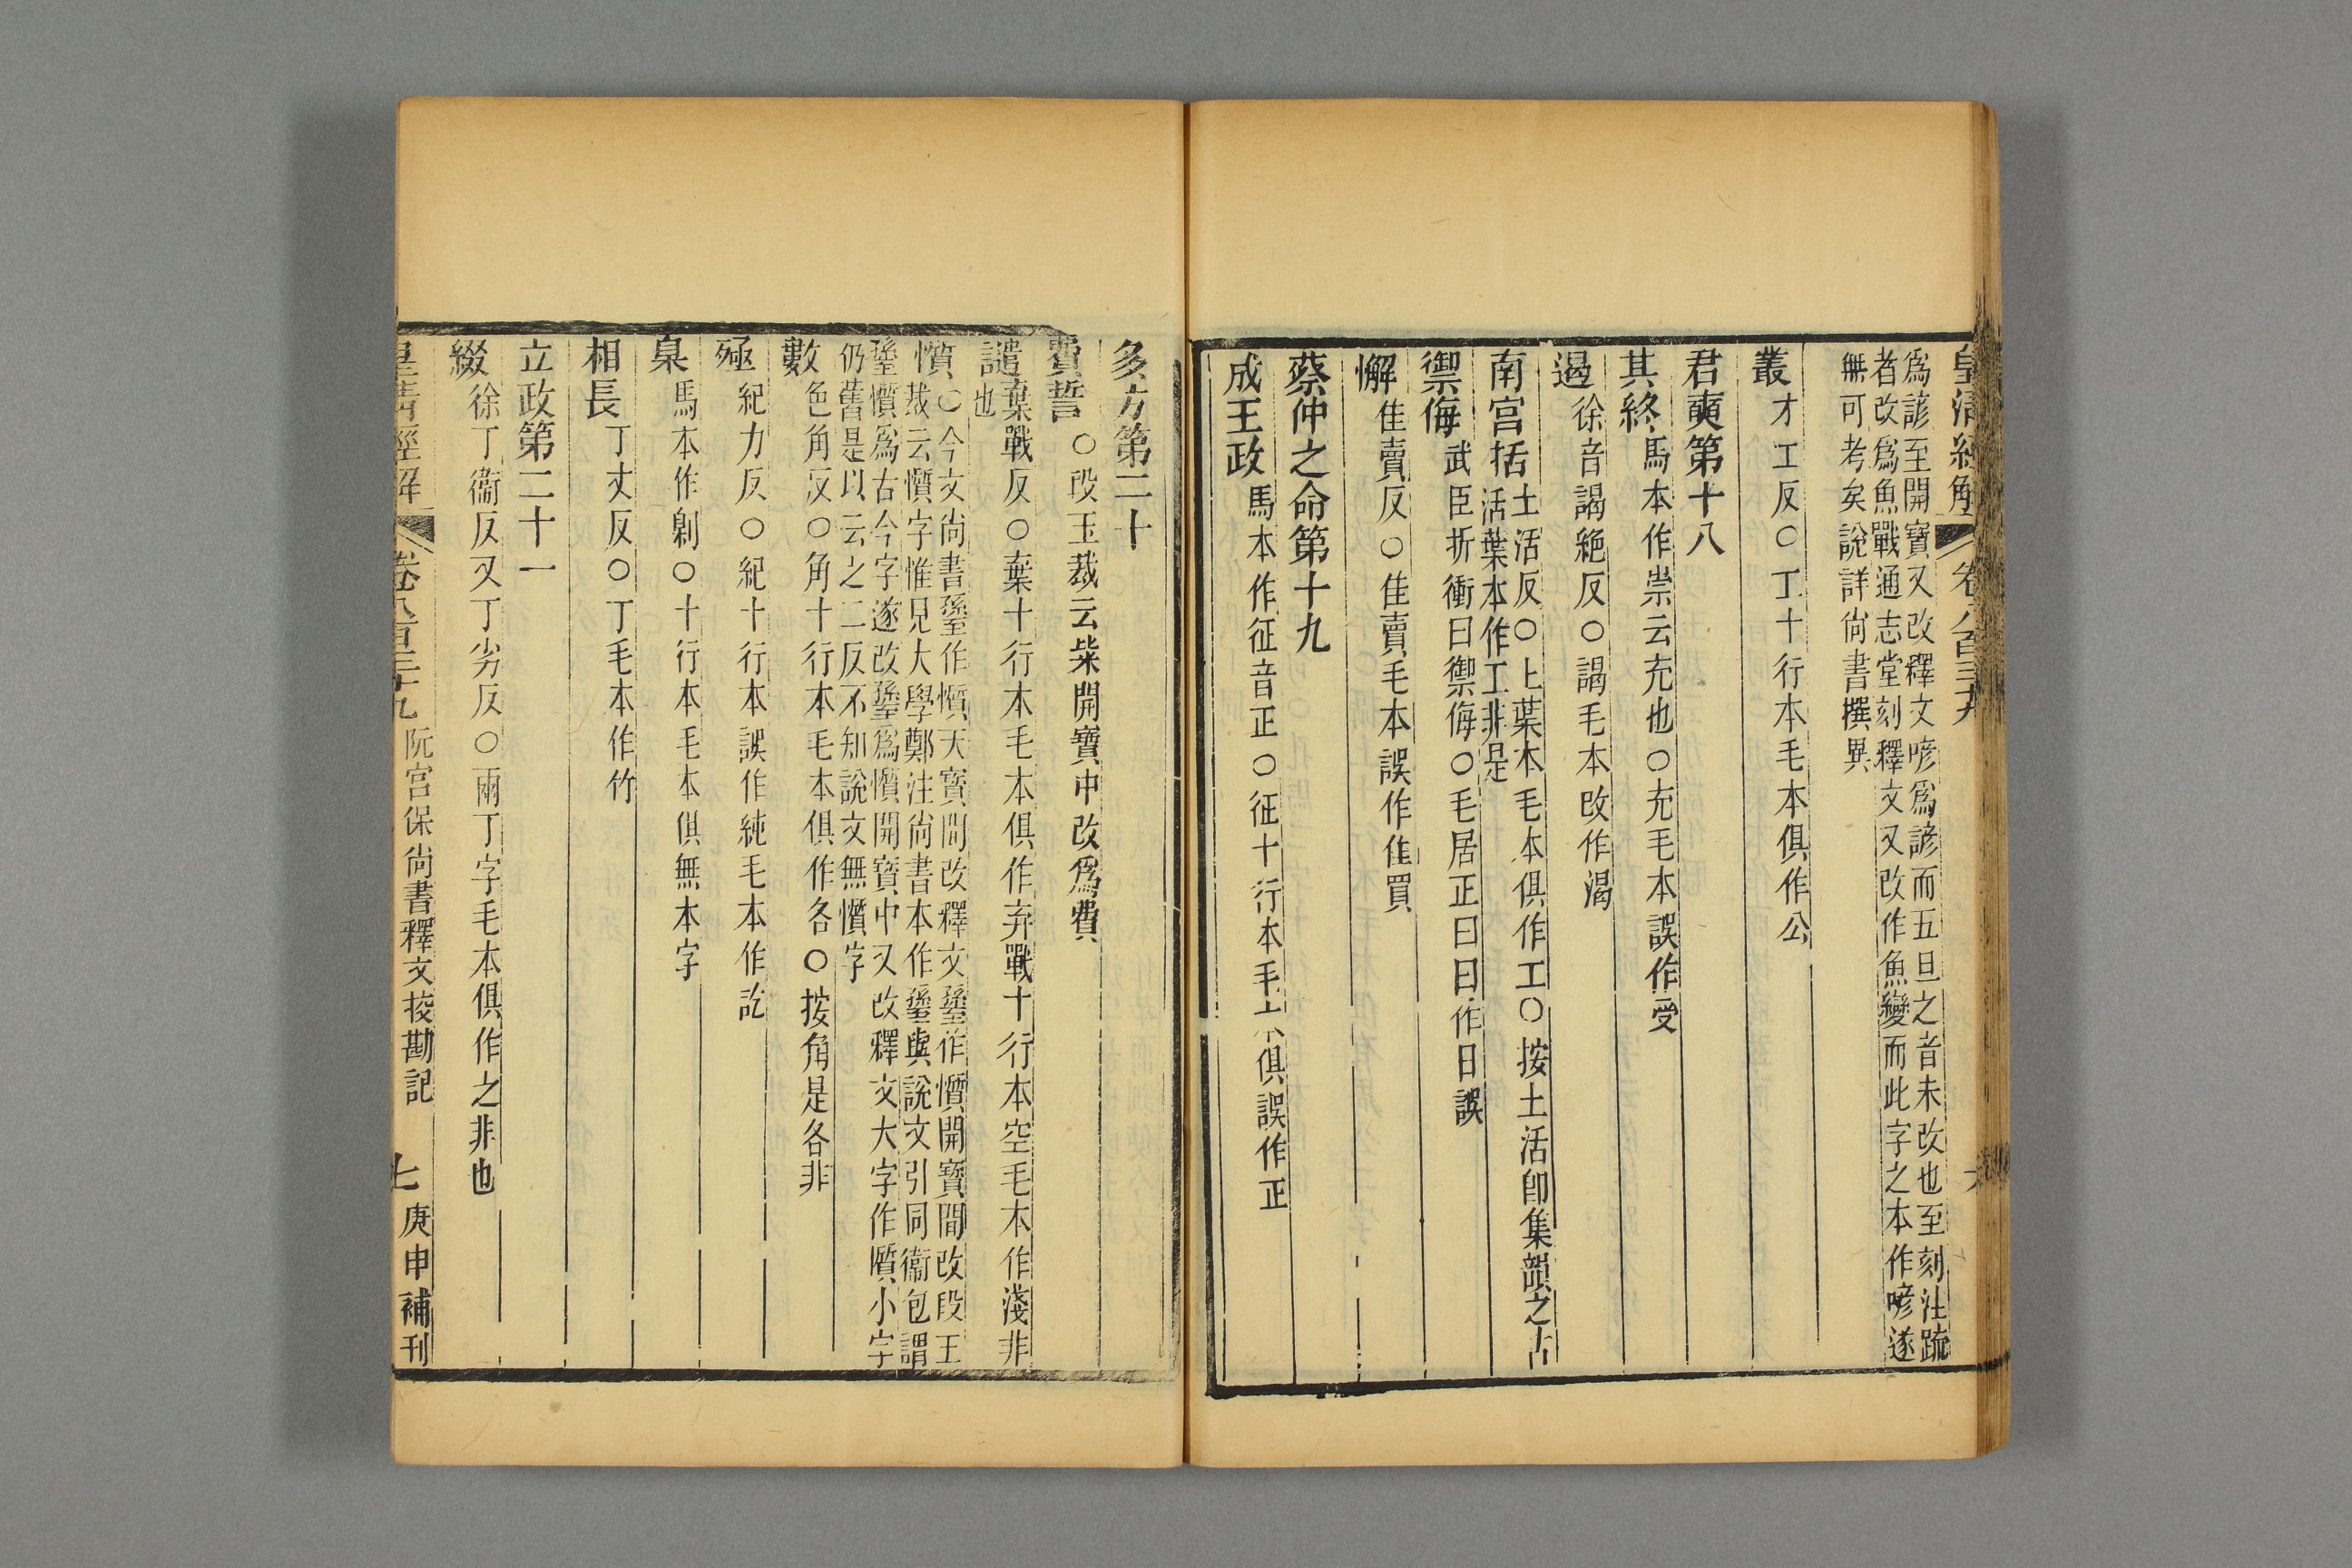 皇清經解 卷八百三十九
爲諺至開寶又改釋文喭爲諺而五旦之音未改也至刻注疏
者改爲魚戰通志堂刻釋文又改作魚變而此字之本作喭遂
無可考矣說詳尙書撰異
叢才工反○工十行本毛本俱作公
君奭第十八
其終馬本作崇云充也○充毛本誤作受
遏徐音謁絶反○謁毛本改作渴
南宮括土活反○上葉本毛本俱作工○按土活卽集韻之古
活葉本作工非是
禦侮武臣折衝曰禦侮○毛居正曰曰作日誤
懈佳賣反○佳賣毛本誤作佳買
蔡仲之命第十九
成王政馬本作征音正○征十行本毛本俱誤作正
多方第二十
費誓○段玉裁云柴開寶中改爲費
譴棄戰反○棄十行本毛本俱作弃戰十行本空毛本作淺非
也
懫○今文尙書𦥎作懫天寶間改釋文𦥎作懫開寶間改段玉
裁云懫字惟見大學鄭注尙書本作𦥎與說文引同衞包謂
𦥎懫爲古今字遂改𦥎爲懫開寶中又改釋文大字作懫小字
仍舊是以云之二反不知說文無懫字
數色角反○角十行本毛本俱作各○按角是各非
殛紀力反○紀十行本誤作純毛本作訖
臬馬本作劓○十行本毛本俱無本字
相長丁丈反○丁毛本作竹
立政第二十一
綴徐丁衞反又丁劣反○兩丁字毛本俱作之非也
皇清經解 卷八百三十九 阮宮保尙書釋文挍勘記 七 庚申補刊